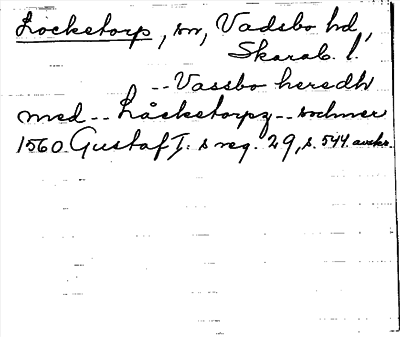 Locketorp, sn, Vadsbo hd,
Skarab. l.
-- Vassbo heredh
med -- Låcketorpz -- sochner
1560. Gustaf I:s reg. 29, s. 544. avskr.